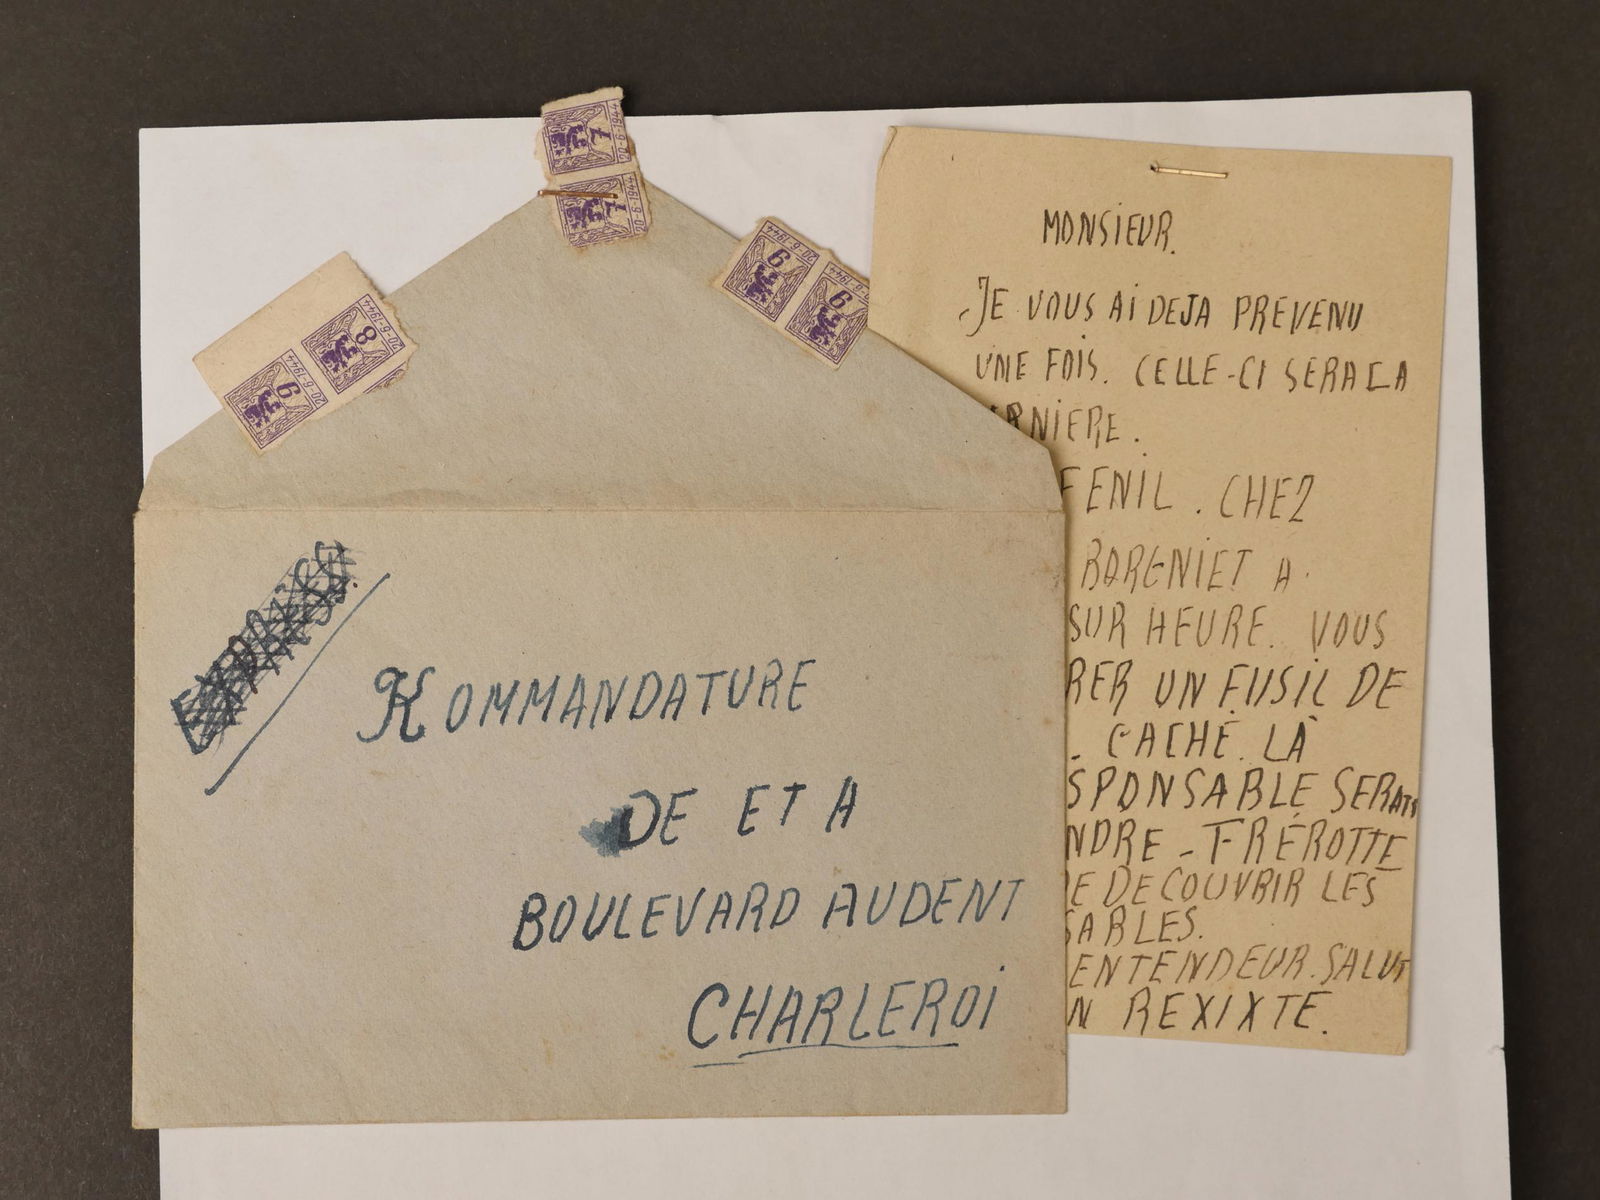 7 20-6-1944
7 20-6-1944
8 20-6-1944
9 20-6-1944
9 20-6-1944
9 20-6-1944
EXPRES
KOMMANDATURE
DE ET A
BOULEVARD AUDENT
CHARLEROI
MONSIEUR.
JE VOUS AI DEJA PREVENU
UNE FOIS. CELLE-CI SERA LA
RNIERE.
FENIL. CHEZ
BORGNIET A.
SUR HEURE. VOUS
RER UN FUSIL DE
CACHÉ. LÀ
SPONSABLE SERAIT
NDRE - FRÉROTTE
E DECOUVRIR LES
SABLES.
ENTENDEUR. SALUT
N REXIXTE.